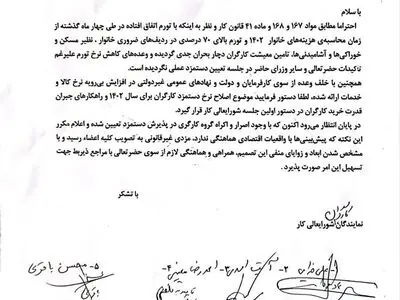 با سلام
احتراما مطابق مواد ۱۶۷ و ۱۶۸ و ماده ۴۱ قانون کار و نظر به اینکه با تورم اتفاق افتاده در طی چهار ماه گذشته از
زمان محاسبه‌ی هزینه‌های خانوار ۱۴۰۲ و تورم بالای ۷۰ درصدی در ردیف‌های ضروری خانوار ، نظیر مسکن و
خوراکی‌ها و آشامیدنی‌ها، تامین معیشت کارگران دچار بحران جدی گردیده و وعده‌های کاهش نرخ تورم علیرغم
تاکیدات حضرتعالی و سایر وزرای حاضر در جلسه تعیین دستمزد عملی نگردیده است.
همچنین با خلف وعده از سوی کارفرمایان و دولت و نهادهای عمومی غیردولتی در افزایش بی‌رویه نرخ کالا و
خدمات ارائه شده، لطفا دستور فرمایید موضوع اصلاح نرخ دستمزد کارگران برای سال ۱۴۰۲ و راهکارهای جبران
قدرت خرید کارگران در دستور اولین جلسه شورایعالی کار قرار گیرد.
در پایان انتظار می‌رود اکنون که با وجود اصرار و اکراه گروه کارگری در پذیرش دستمزد تعیین شده و اعلام مکرر
این نکته که پیش‌بینی‌ها با واقعیات اقتصادی هماهنگی ندارد، مزدی غیرقانونی به تصویب کلیه اعضاء رسید، و با
مشخص شدن ابعاد و زوایای منفی این تصمیم، همراهی و هماهنگی لازم از سوی حضرتعالی با مراجع ذیربط جهت
تسهیل این امر صورت پذیرد .
با تشکر
نمایندگان شورایعالی کار
۵- محسن باقری